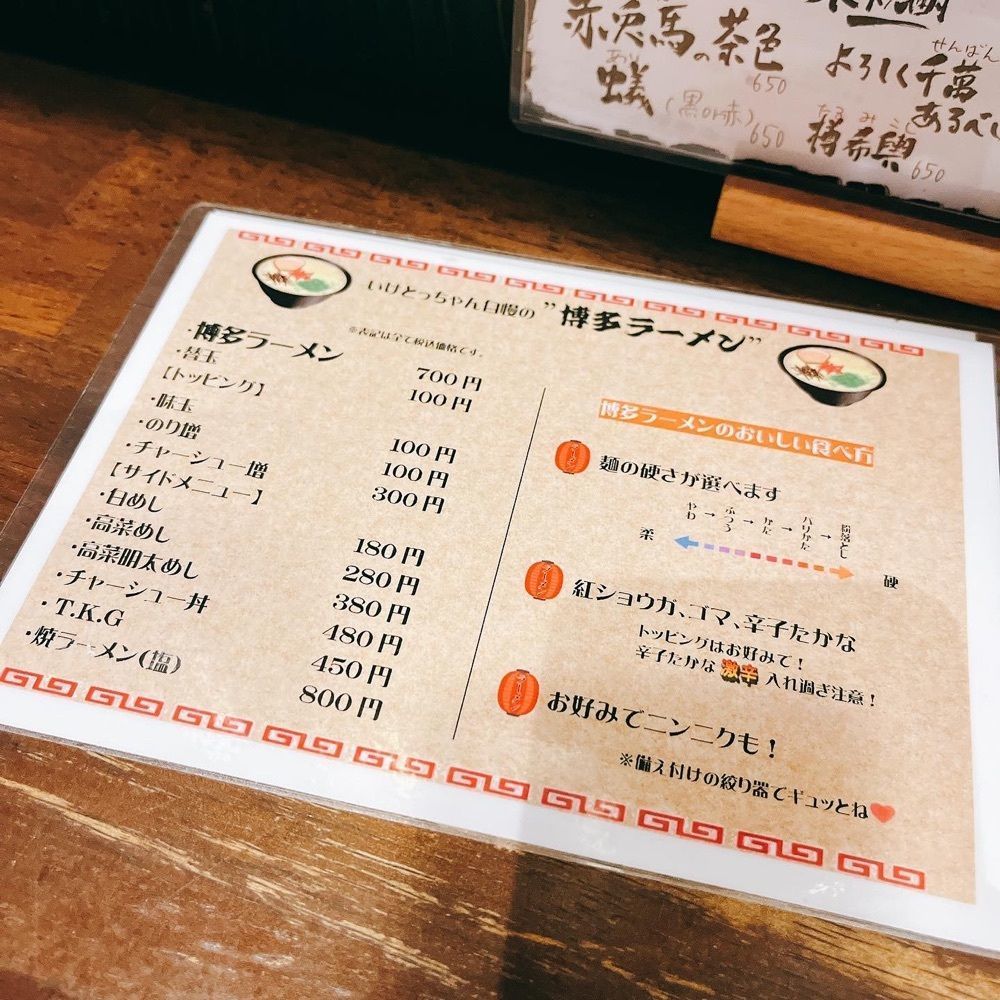 赤兎馬の茶色
650
あり
蟻(黒or赤)
650
せんばん
よろしく千萬
あるべし
なるみこし
樽希輿
650
いけとっちゃん自慢の”博多ラーメン”
※表記は全て税込価格です。
・博多ラーメン 700円
・替玉 100円
【トッピング】
・味玉 100円
・のり増 100円
・チャーシュー増 300円
【サイドメニュー】
・白めし 180円
・高菜めし 280円
・高菜明太めし 380円
・チャーシュー丼 480円
・T.K.G 450円
・焼ラーメン(塩) 800円
博多ラーメンのおいしい食べ方
ラーメン
麺の硬さが選べます
やわ→ふつう→かた→バリかた→粉落とし
柔 硬
ラーメン
紅ショウガ、ゴマ、辛子たかな
トッピングはお好みで!
辛子たかな 激辛 入れ過ぎ注意!
ラーメン
お好みでニンニクも!
※備え付けの絞り器でギュッとね